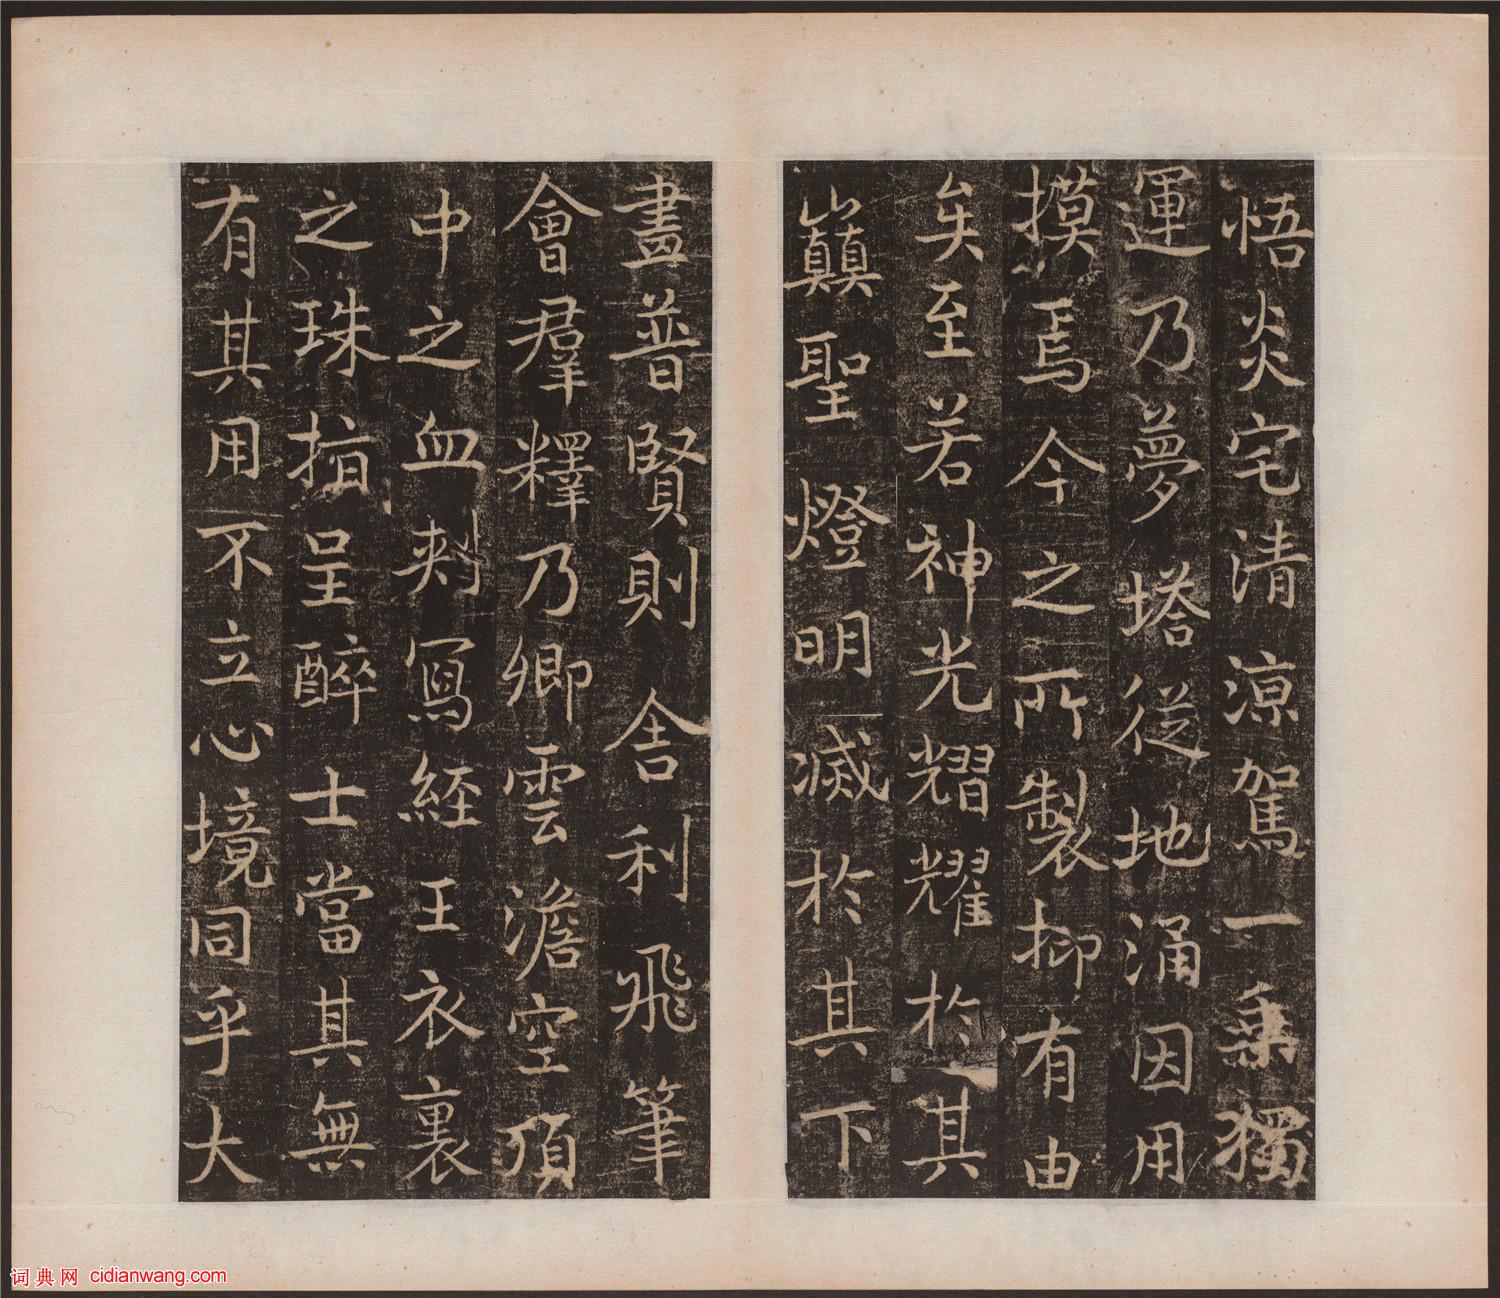 悟炎宅清涼駕一乘獨
運乃夢塔從地涌因用
摸焉今之所製抑有由
矣至若神光熠耀於其
巔聖燈明滅於其下
畫普賢則舍利飛筆
會群釋乃卿雲澹空頂
中之血刺寫經王衣裏
之珠指呈醉士當其無
有其用不立心境同乎大
词典网 cidianwang.com